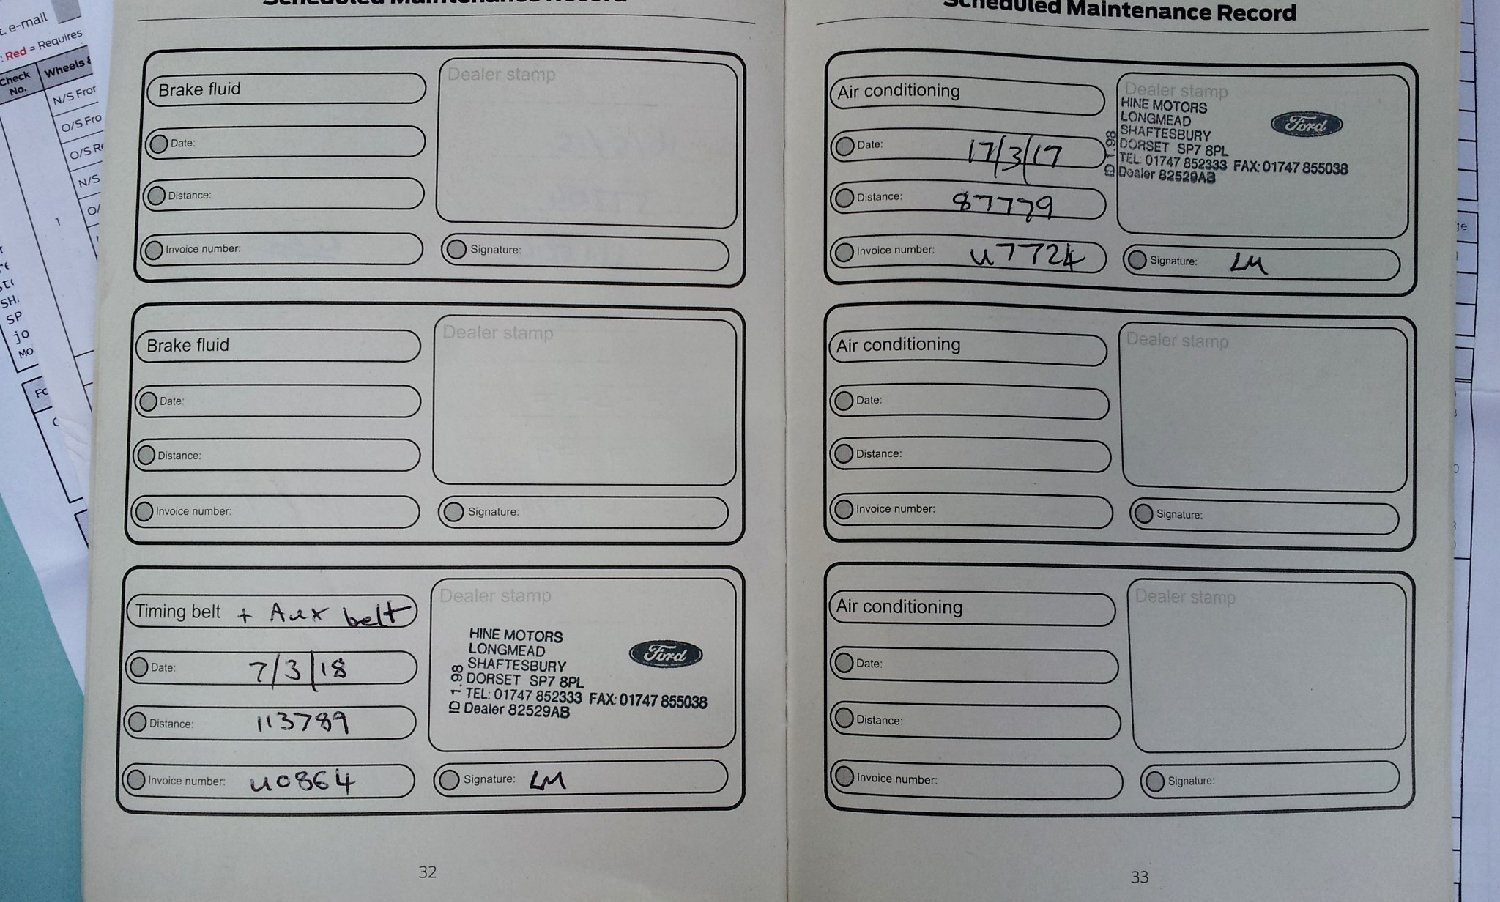 t. e-mail
: Red = Requires
Check No.
Wheels &
N/S Fror
O/S Fro
O/S R
N/S
O/
1
SH.
SP
jo
Mo
FC
Scheduled Maintenance Record
Brake fluid
Dealer stamp
Date:
Distance:
Invoice number:
Signature:
Brake fluid
Dealer stamp
Date:
Distance:
Invoice number:
Signature:
Timing belt + Aux belt
Date: 7/3/18
Distance: 113789
Invoice number: u0864
Dealer stamp
HINE MOTORS
LONGMEAD
SHAFTESBURY
DORSET SP7 8PL
TEL: 01747 852333 FAX: 01747 855038
Dealer 82529AB
ID 1.98
Ford
Signature: LM
32
Scheduled Maintenance Record
Air conditioning
Date: 17/3/17
Distance: 87779
Invoice number: u7724
Dealer stamp
HINE MOTORS
LONGMEAD
SHAFTESBURY
DORSET SP7 8PL
TEL: 01747 852333 FAX: 01747 855038
Dealer 82529AB
ID 1.98
Ford
Signature: LM
Air conditioning
Dealer stamp
Date:
Distance:
Invoice number:
Signature:
Air conditioning
Dealer stamp
Date:
Distance:
Invoice number:
Signature:
33